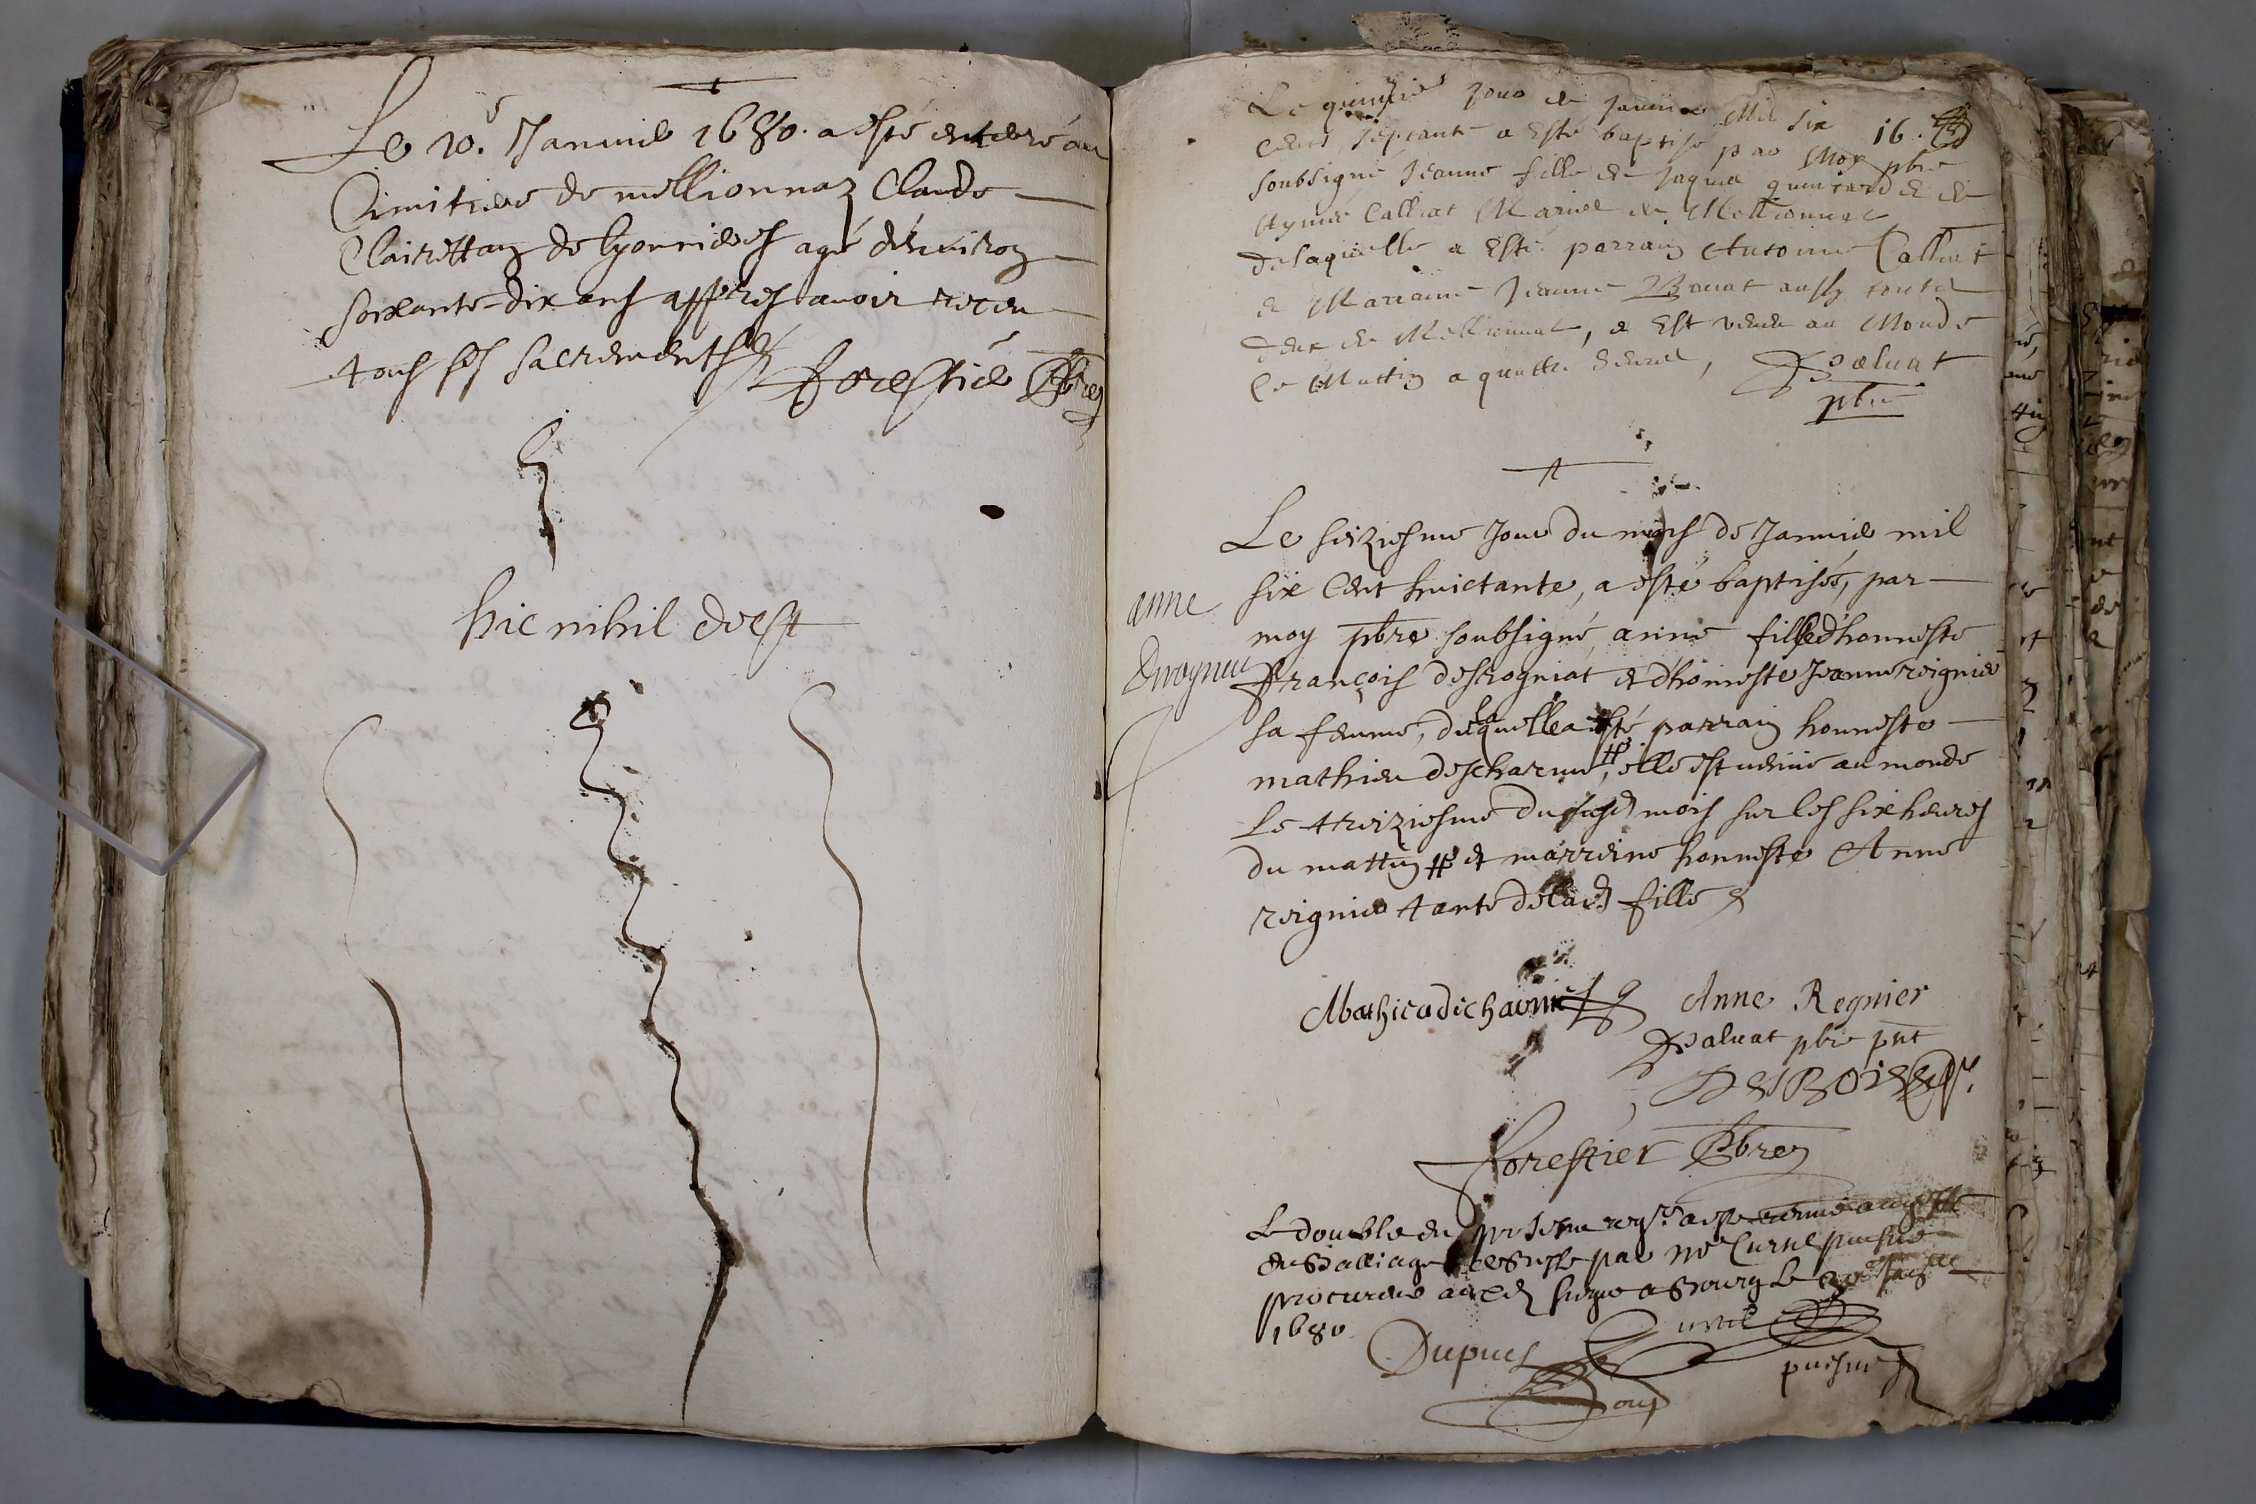 Le 10.e Januier 1680. a esté enterré au
Cimitiere de mellionnaz Claude
Clairettan de lyonnieres agé d'enuiron
soixante-dix ans appres auoir receu
tous ses sacrements
forestier Pbre
hic nihil deest
Le quinzie Jour de Januier Mil six
16.
cents septante a Esté baptisé par Moy pbre
soubsigné Jeanne fille de Jaques et de
Aymée Calliat Mariés de Mellionnat
de laquelle a Esté parrain Antoine Calliat
et Marraine Jeanne Bouat aussy touts
deux de Mellionnat, et Est venue au Monde
Ce Mattin a quattre heures,
Desaluat
pbre
Le seiziesme Jour du mois de Januier mil
six Cent huictante, a esté baptisée, par
moy pbre soubsigné, anne fille d'honneste
anne
François desrogniat et d'honneste Jeanne reignier
sa femme, de laquelle a esté parrain honneste
mathieu descharme #, elle est venüe au monde
Le treiziesme dudit mois sur les six heures
du mattin # et marreine honneste Anne
reignier tante de lad fille
Mathieu dicharme
Anne Regnier
Desaluat pbre pnt
DESBOIS
forestier Pbre
Le double du present reg.re a esté remis au greffe
du Balliage de Bresse par Me Curnil
procureur aud siege a Bourg Le
1680
Dupuis